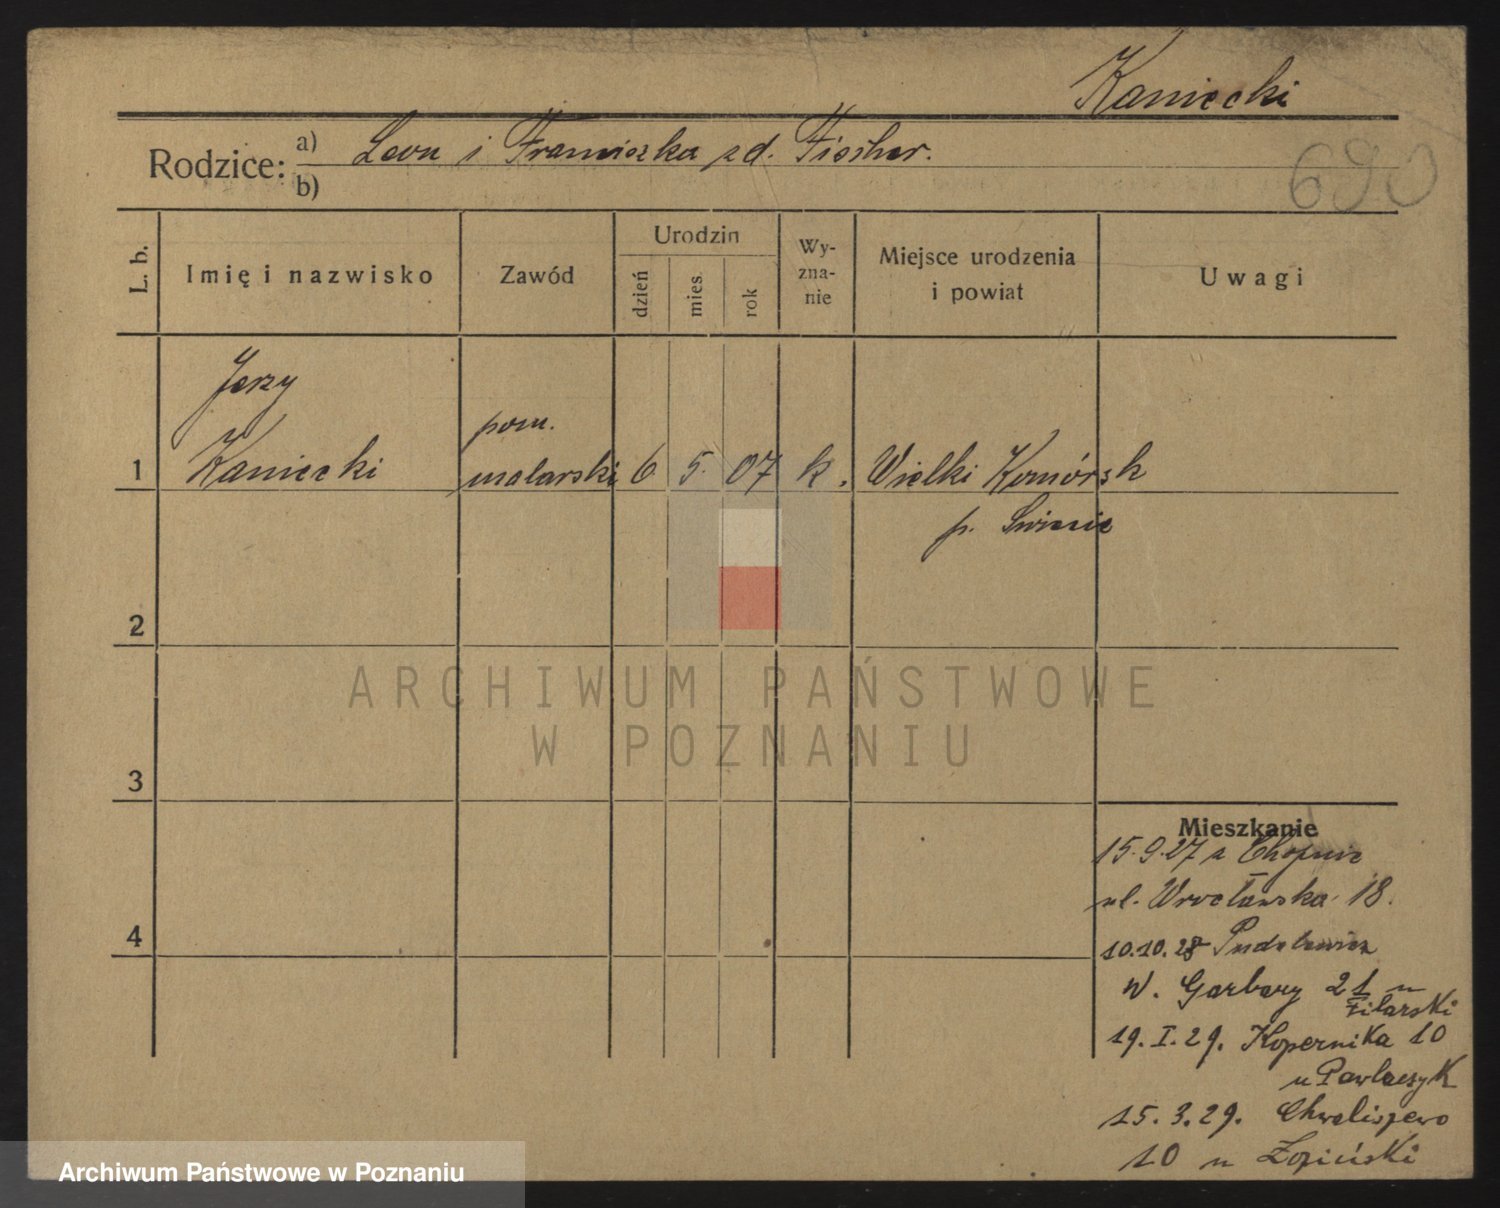 Kaniecki
Rodzice: a) Leon i Franciszka zd. Fischer.
b)
690
L. b.
Imię i nazwisko
Zawód
Urodzin
dzień
mies.
rok
Wy-
zna-
nie
Miejsce urodzenia
i powiat
Uwagi
Jerzy
pom.
1 Kaniecki malarski 6 5. 07 k. Wielki Komórsk
p. Świecie
2
ARCHIWUM PAŃSTWOWE
W POZNANIU
3
Mieszkanie
15.9.27 z Chojnic
ul. Wrocławska 18.
4
10.10.28
W. Garbary 21 u
Filarski
19.I.29. Kopernika 10
u Pawlaczyk
15.3.29. Chwaliszewo
10 u Łopiński
Archiwum Państwowe w Poznaniu